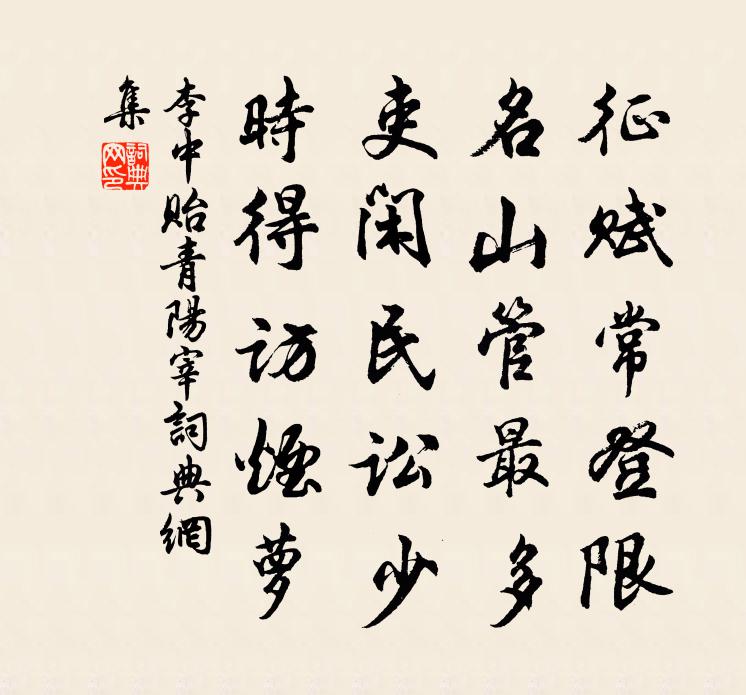 征赋常登限
名山管最多
吏闲民讼少
時得访煙萝
李中貽青陽宰詞典網
集
詞典
网印